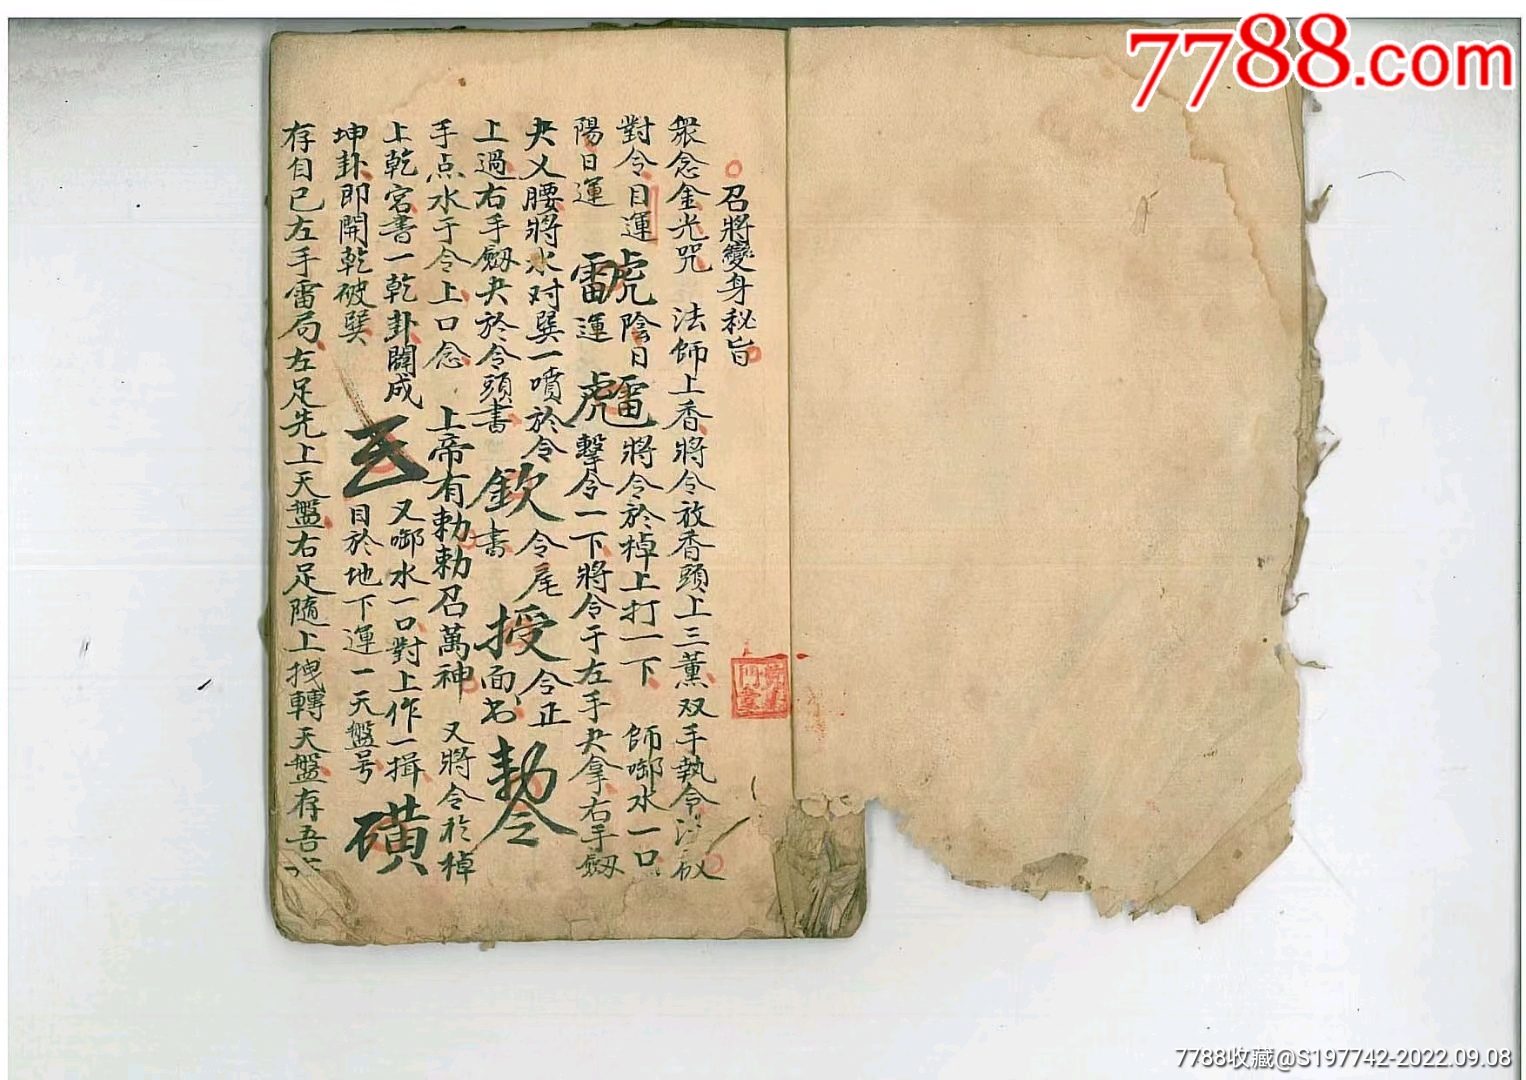 7788.com
召將變身秘旨
衆念金光咒 法師上香將令放香頭上三薰双手執令
對令目運 虎 陰日 雷 將令於棹上打一下 師啣水一口
陽日運 雷 運 虎 擊令一下將令于左手夬拿右手劔
夬乂腰將水对巽一噴於令 欽 令尾 授 令正
上過右手劔夬於令頭書 書 面书 勅令
手点水于令上口念 上帝有勅勅召萬神 又將令於棹
上乾宮書一乾卦闢成 又啣水一口對上作一揖
坤卦即開乾破巽 目於地下運一天盤号 磺
存自已左手雷局左足先上天盤右足隨上拽轉天盤存吾
7788收藏@S197742-2022.09.08